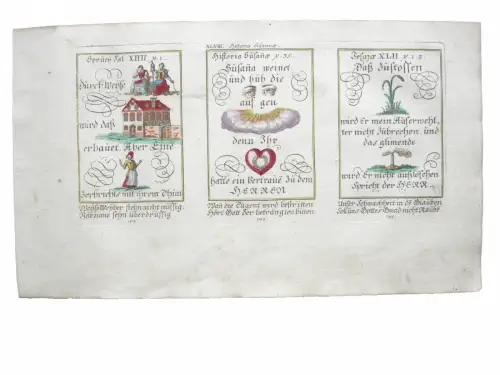 XLVIII. Historia Susannæ.
Sprüch Sal XIIII v. 1.
Durch Weise
wird daß
erbauet. Aber Eine
Zerbrichts mit ihrem Thun
Weise Weiber stehn nicht müssig.
Närrinne seyn überdrüssig
Historia Susañæ v. 35.
Susaña weinet
und hub die
auf gen
denn Ihr
hatte ein Vertraue Zu dem
HERREN
Wañ die Tugent wird bestritten
Hört Gott der bedrängten bitten
Jesajæ XLII v. 3.
Daß Zustossen
wird Er nicht
ter nicht Zubrechen und
das glimende
wird Er nicht außleschen
Spricht der HERR.
Unser Schwachheit in dē Glauben
Gottes Gnad nicht Raubē